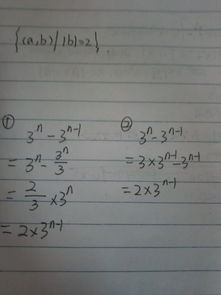 {(a,b)||b|=2}
① 3ⁿ - 3ⁿ⁻¹
= 3ⁿ - 3ⁿ/3
= 2/3 × 3ⁿ
= 2×3ⁿ⁻¹
② 3ⁿ - 3ⁿ⁻¹
= 3×3ⁿ⁻¹-3ⁿ⁻¹
= 2×3ⁿ⁻¹